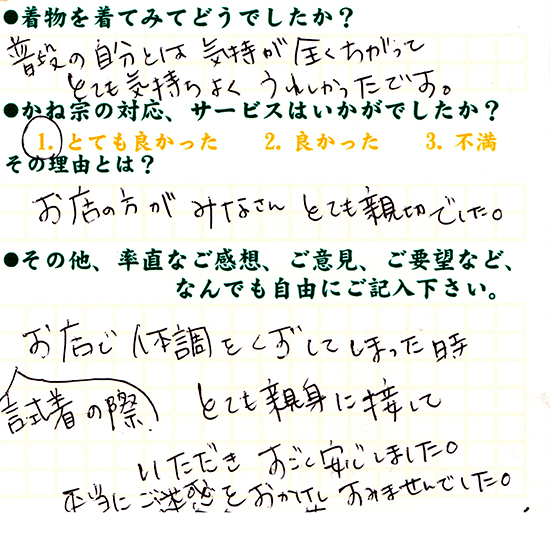 ●着物を着てみてどうでしたか？
普段の自分とは気持が全くちがって
とても気持ちよくうれしかったです。
●かね宗の対応、サービスはいかがでしたか？
1. とても良かった 2. 良かった 3. 不満
その理由とは？
お店の方がみなさんとても親切でした。
●その他、率直なご感想、ご意見、ご要望など、
なんでも自由にご記入下さい。
お店で体調をくずしてしまった時
試着の際、とても親身に接して
いただきすごく安心しました。
本当にご迷惑をおかけしすみませんでした。